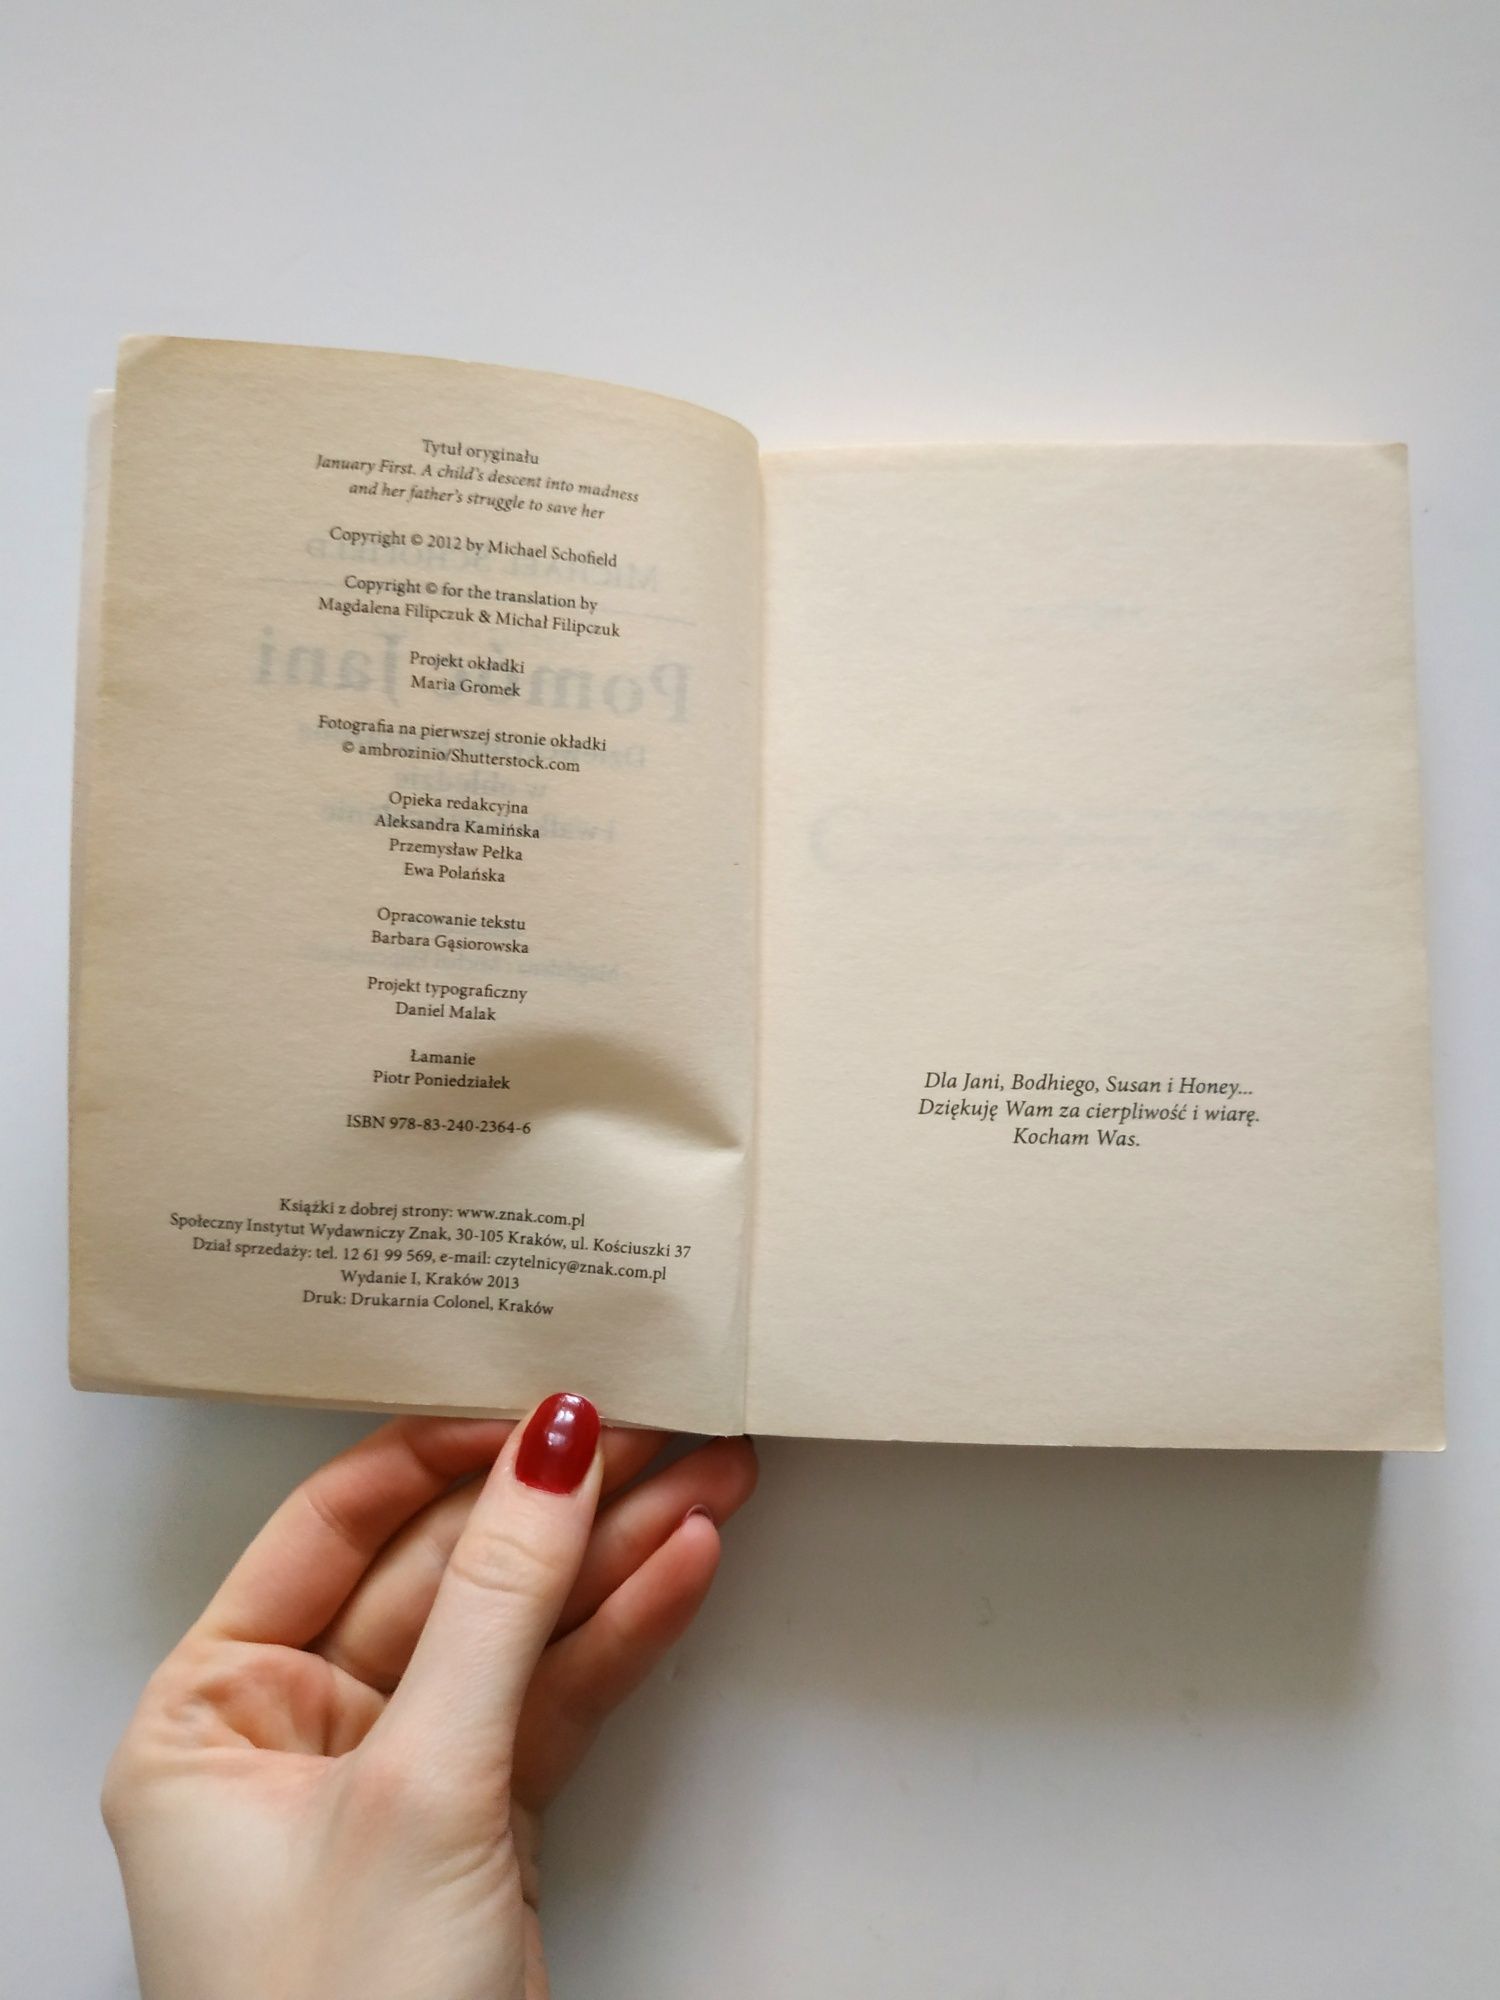 Tytuł oryginału
January First. A child's descent into madness
and her father's struggle to save her
Copyright © 2012 by Michael Schofield
Copyright © for the translation by
Magdalena Filipczuk & Michał Filipczuk
Projekt okładki
Maria Gromek
Fotografia na pierwszej stronie okładki
© ambrozinio/Shutterstock.com
Opieka redakcyjna
Aleksandra Kamińska
Przemysław Pełka
Ewa Polańska
Opracowanie tekstu
Barbara Gąsiorowska
Projekt typograficzny
Daniel Malak
Łamanie
Piotr Poniedziałek
ISBN 978-83-240-2364-6
Książki z dobrej strony: www.znak.com.pl
Społeczny Instytut Wydawniczy Znak, 30-105 Kraków, ul. Kościuszki 37
Dział sprzedaży: tel. 12 61 99 569, e-mail: czytelnicy@znak.com.pl
Wydanie I, Kraków 2013
Druk: Drukarnia Colonel, Kraków
Dla Jani, Bodhiego, Susan i Honey...
Dziękuję Wam za cierpliwość i wiarę.
Kocham Was.